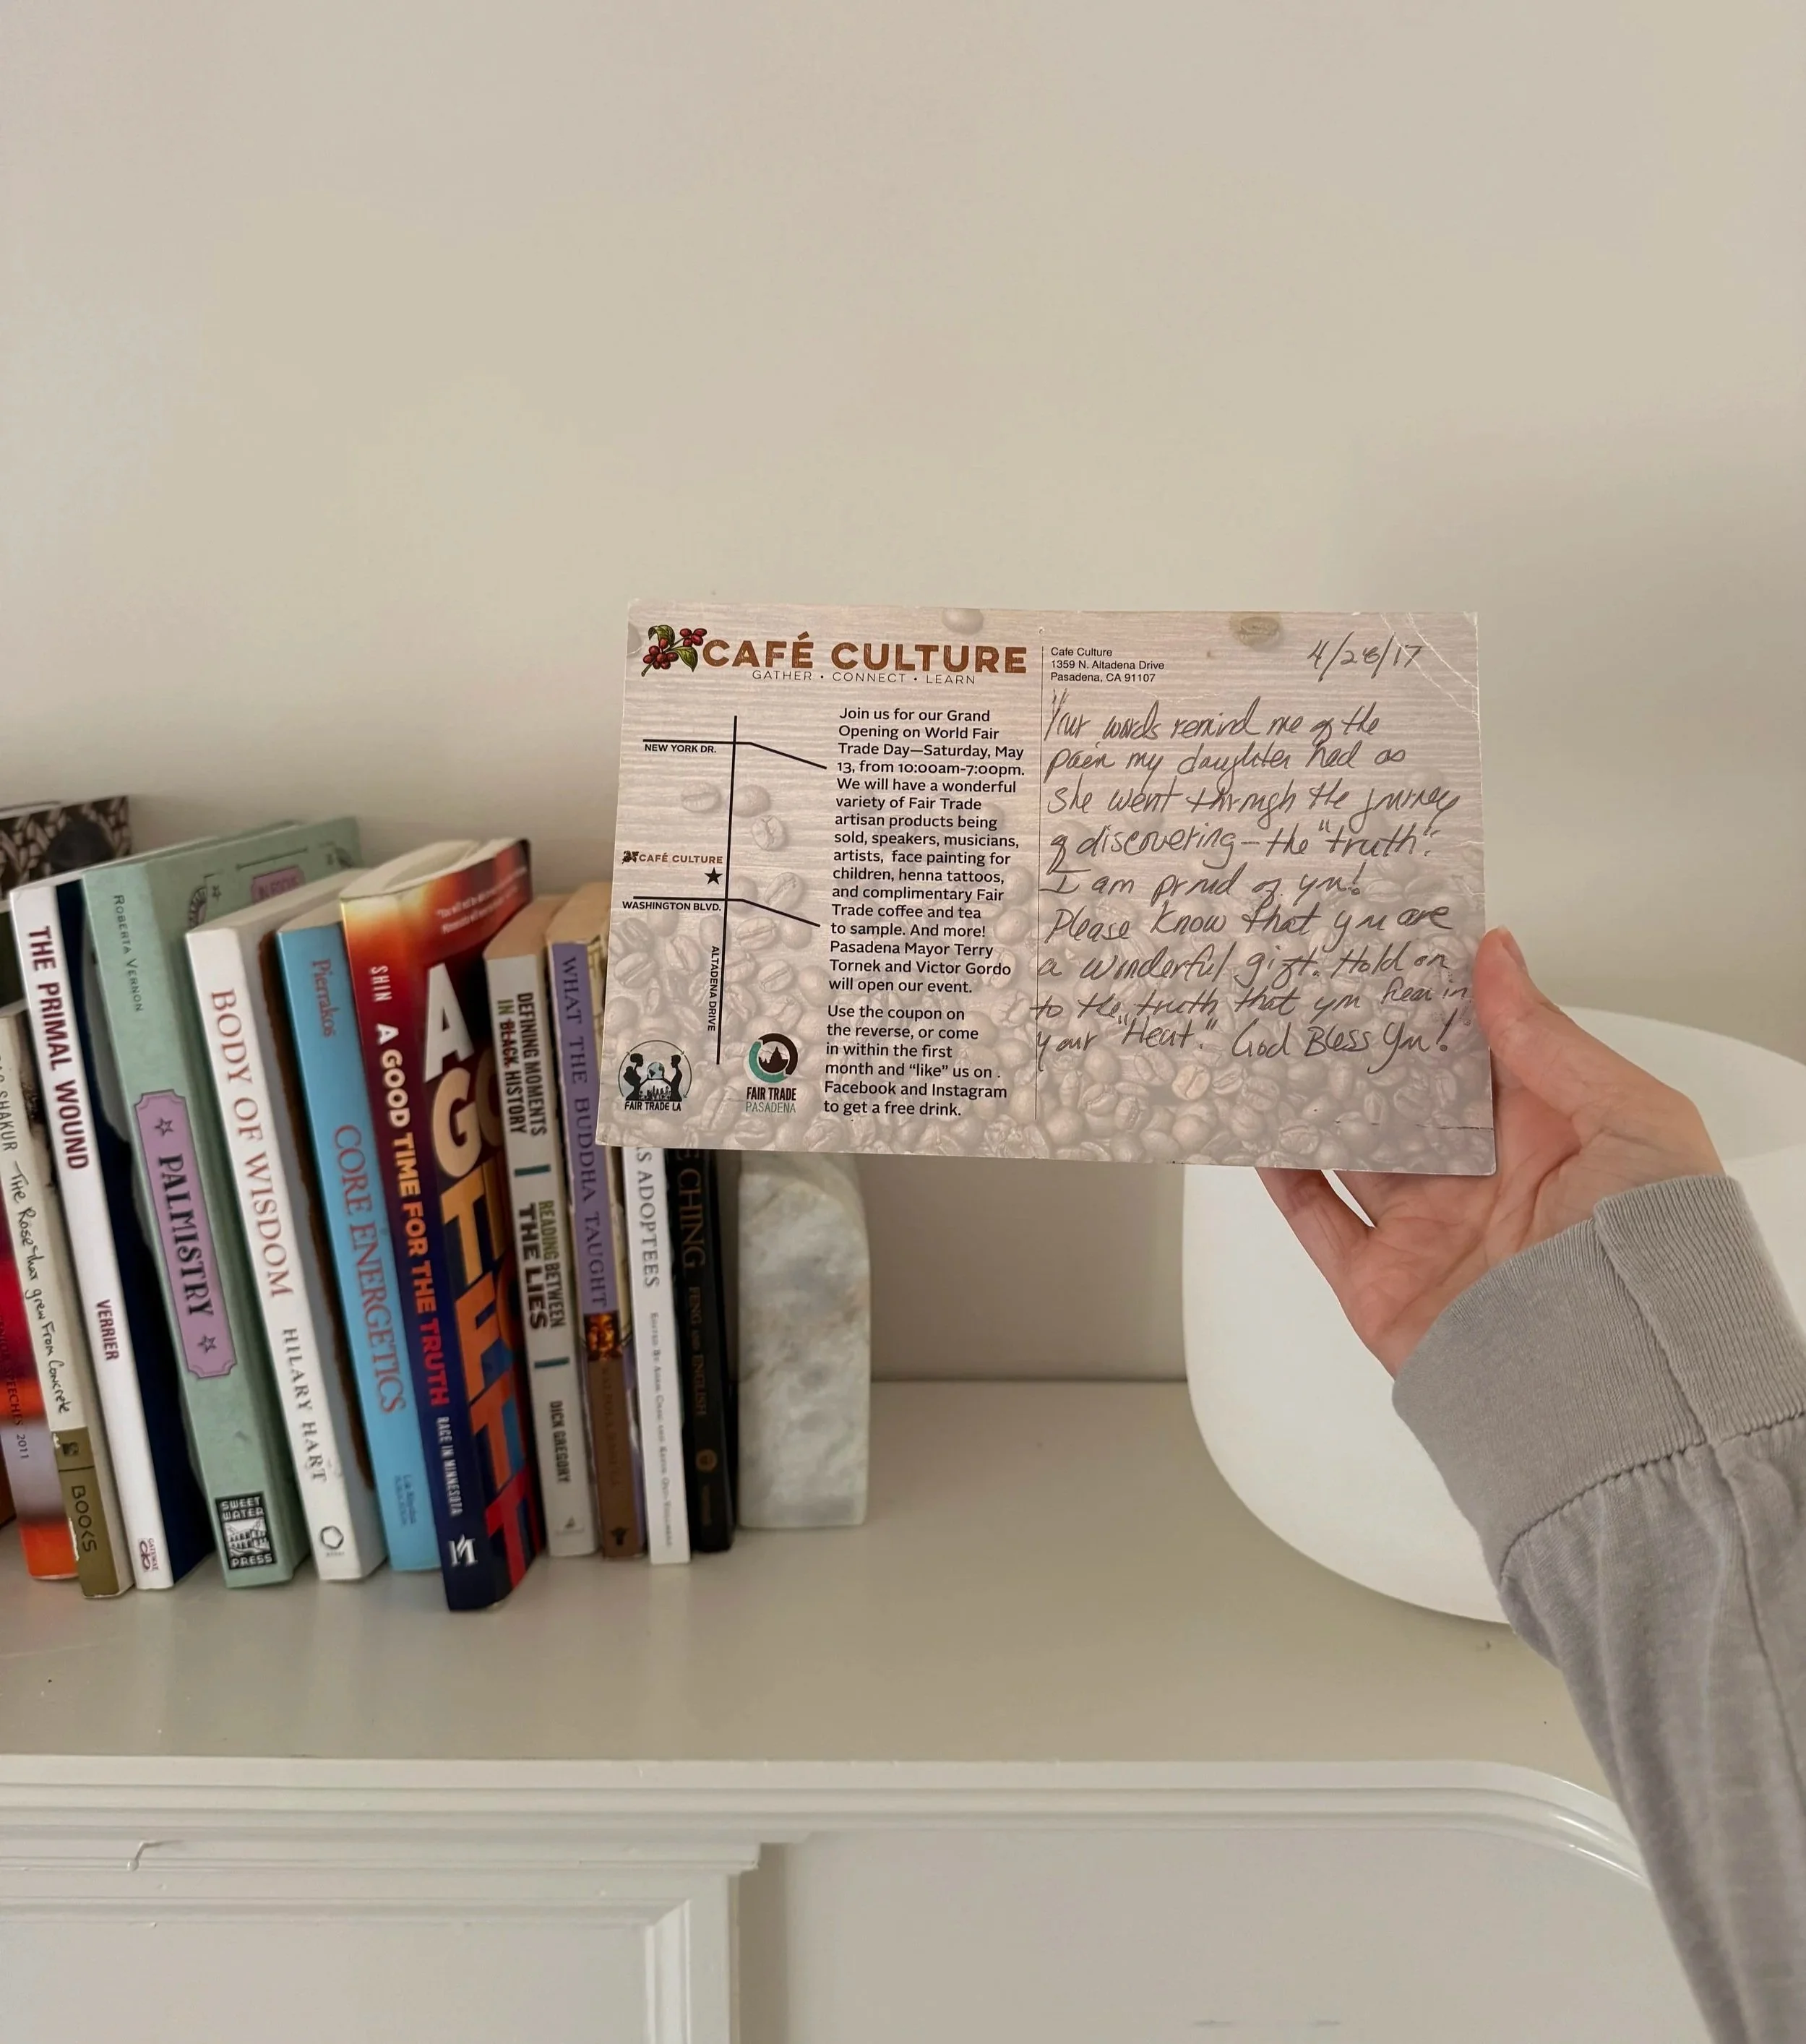 CAFÉ CULTURE
GATHER • CONNECT • LEARN
NEW YORK DR.
CAFÉ CULTURE
WASHINGTON BLVD.
ALTADENA DRIVE
FAIR TRADE LA
FAIR TRADE
PASADENA
Join us for our Grand
Opening on World Fair
Trade Day—Saturday, May
13, from 10:00am-7:00pm.
We will have a wonderful
variety of Fair Trade
artisan products being
sold, speakers, musicians,
artists, face painting for
children, henna tattoos,
and complimentary Fair
Trade coffee and tea
to sample. And more!
Pasadena Mayor Terry
Tornek and Victor Gordo
will open our event.
Use the coupon on
the reverse, or come
in within the first
month and “like” us on
Facebook and Instagram
to get a free drink.
Cafe Culture
1359 N. Altadena Drive
Pasadena, CA 91107
4/28/17
Your words remind me of the
pain my daughter had as
she went through the journey
of discovering - the "truth".
I am proud of you!
Please know that you are
a wonderful gift. Hold on
to the truth that you hear in
your "Heart." God Bless You!
SHAKUR
The Rose that grew From Concrete
BOOKS
SPEECHES 2011
THE PRIMAL WOUND
VERRIER
ROBERTA VERNON
PALMISTRY
SWEET
WATER
PRESS
BODY OF WISDOM
HILARY HART
Pierrakos
CORE ENERGETICS
SHIN
A GOOD TIME FOR THE TRUTH
RACE IN MINNESOTA
A
GO
DEFINING MOMENTS
IN BLACK HISTORY
READING BETWEEN
THE LIES
DICK GREGORY
WHAT THE BUDDHA TAUGHT
ADOPTEES
CHING
FENG AND ENGLISH